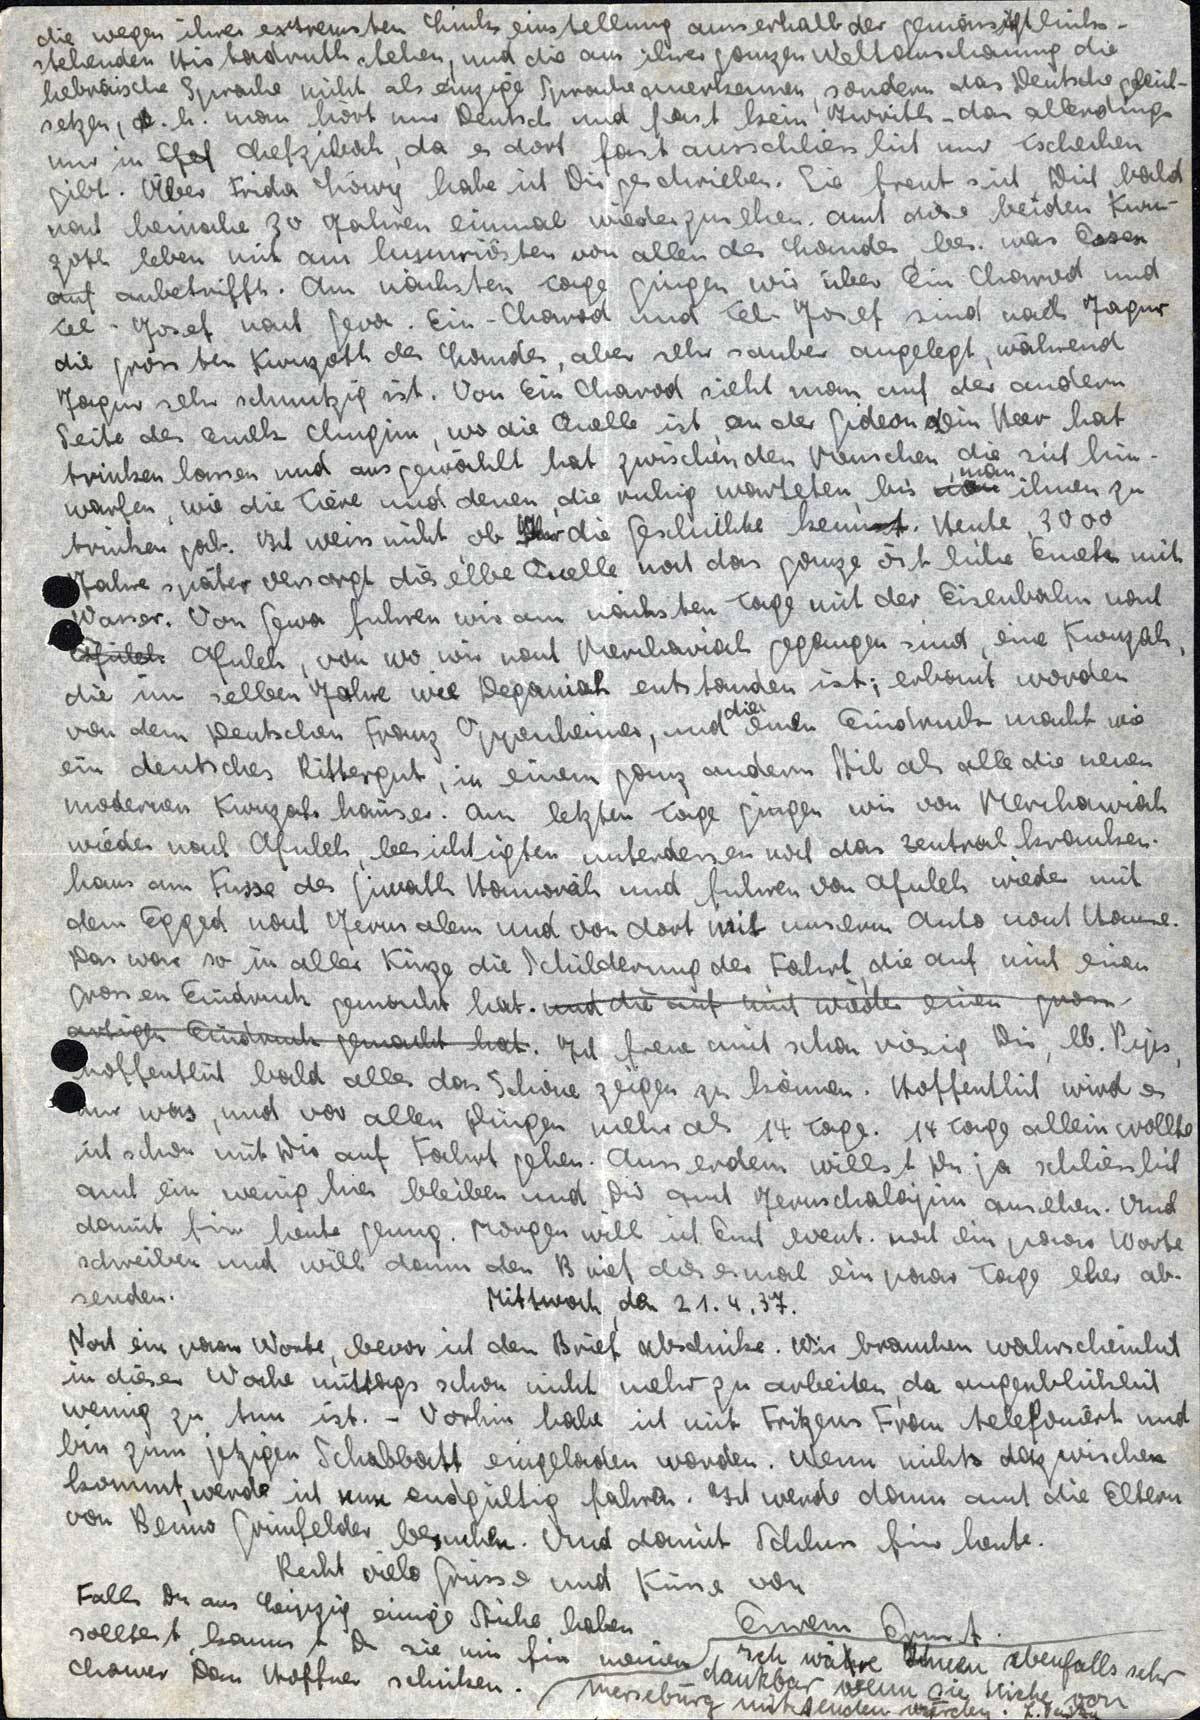 die wegen ihrer extremsten Linkseinstellung ausserhalb der gemässigtlinks-
stehenden Histadruth stehen, und die aus ihrer ganzen Weltanschauung die
hebräische Sprache nicht als einzige Sprache anerkennen, sondern das Deutsche gleich-
setzen, d.h. man hört nur Deutsch und fast kein Iwrith - das allerdings
nur in Chefzibah, da es dort fast ausschliesslich nur Tschechen
gibt. Über Frida Löwy habe ich Dir geschrieben. Sie freut sich, Dich bald
nach beinahe 20 Jahren einmal wiederzusehen. Auch diese beiden Kwu-
zoth leben mit am luxuriösten von allen des Landes, bes. was Essen
anbetrifft. Am nächsten Tage gingen wir über Ein Charod und
Tel-Josef nach Geva. Ein-Charod und Tel-Josef sind nach Jagur
die grossten Kwuzoth des Landes, aber sehr sauber angelegt, während
Jagur sehr schmutzig ist. Von Ein Charod sieht man auf der andern
Seite des Emek, wo die Quelle ist, an der Gideon sein Heer hat
trinken lassen und ausgewählt hat zwischen den Menschen, die sich hin-
warfen, wie die Tiere und denen, die ruhig warteten, bis man ihnen zu
trinken gab. Ich weiss nicht, ob Ihr die Geschichte kennt. Heute, 3000
Jahre später versorgt dieselbe Quelle noch das ganze östliche Emek mit
Wasser. Von Gewa fuhren wir am nächsten Tage mit der Eisenbahn nach
Afuleh, von wo wir nach Merchawiah gegangen sind, eine Kwuzah,
die im selben Jahre wie Deganiah entstanden ist; erbaut worden
von dem Deutschen Franz Oppenheimer, und die einen Eindruck macht wie
ein deutsches Rittergut, in einem ganz andern Stil als alle die neuen
modernen Kwuzahhäuser. Am letzten Tage gingen wir von Merchawiah
wieder nach Afuleh, besichtigten unterdessen noch das Zentralkranken-
haus am Fusse des Giwath Hamoreh und fuhren von Afuleh wieder mit
dem Egged nach Jerusalem und von dort mit unserm Auto nach Hause.
Das war so in aller Kürze die Schilderung der Fahrt, die auf mich einen
grossen Eindruck gemacht hat. und die auf mich wieder einen gross-
artigen Eindruck gemacht hat. Ich freue mich schon riesig Dir, lb. Pips,
hoffentlich bald alles das Schöne zeigen zu können. Hoffentlich wird es
nur was, und vor allen Dingen mehr als 14 Tage. 14 Tage allein wollte
ich schon mit Dir auf Fahrt gehen. Ausserdem willst Du ja schliesslich
auch ein wenig hier bleiben und Dir auch Jeruschalajim ansehen. Und
damit für heute genug. Morgen will ich Euch event. noch ein paar Worte
schreiben und will dann den Brief diesmal ein paar Tage eher ab-
senden.
Mittwoch, den 21.4.37.
Noch ein paar Worte, bevor ich den Brief abschicke. Wir brauchen wahrscheinlich
in dieser Woche mittags schon nicht mehr zu arbeiten, da augenblicklich
wenig zu tun ist. - Vorhin habe ich mit Fritzens Frau telefoniert und
bin zum jetzigen Schabbath eingeladen worden. Wenn nichts dazwischen
kommt, werde ich nun endgültig fahren. Ich werde dann auch die Eltern
von Benno Grünfelder besuchen. Und damit Schluss für heute.
Recht viele Grüsse und Küsse von
Eurem Ernst.
Falls Du aus Leipzig einige Stiche haben
solltest, kannst Du sie mir für meinen
Chawer Dan Hoffner schicken.
Ich wäre Ihnen ebenfalls sehr
dankbar wenn sie Stiche von
Merseburg mitsenden würden.